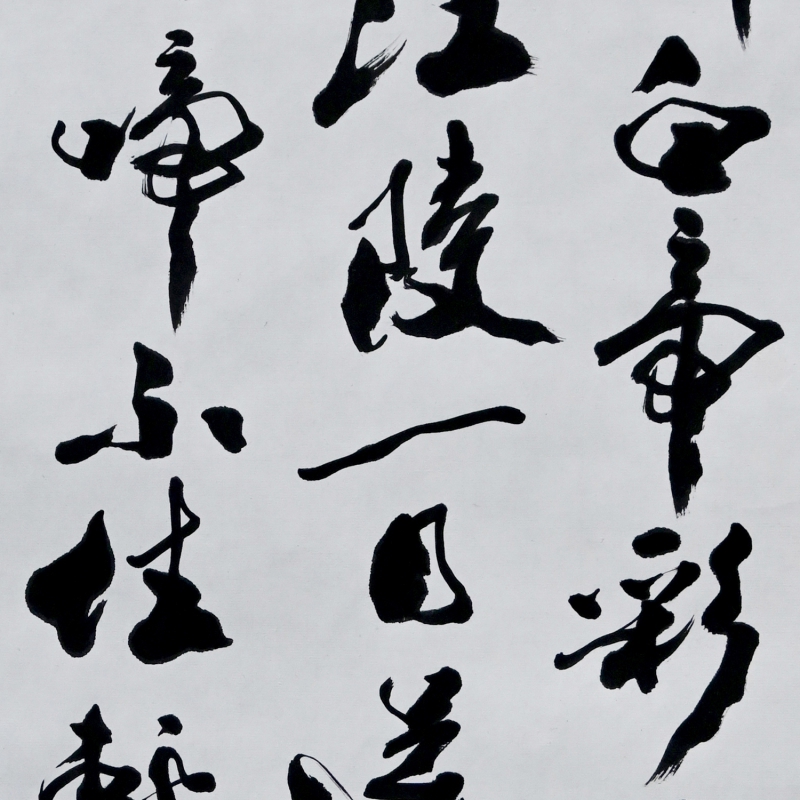 白帝彩
江陵一日
啼不住